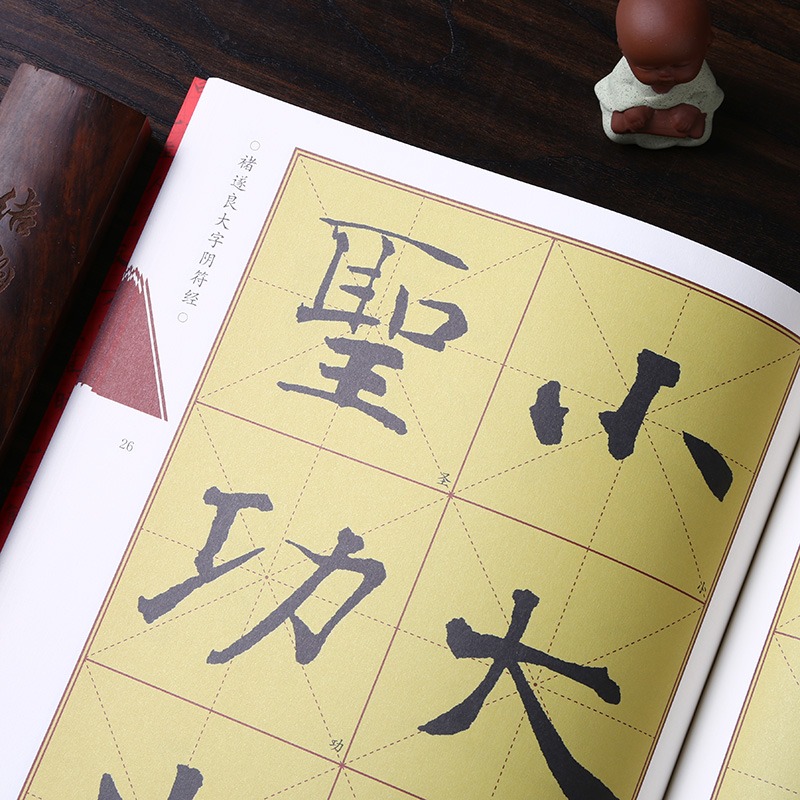 ○褚遂良大字阴符经○
26
小大
小
聖功
圣
功